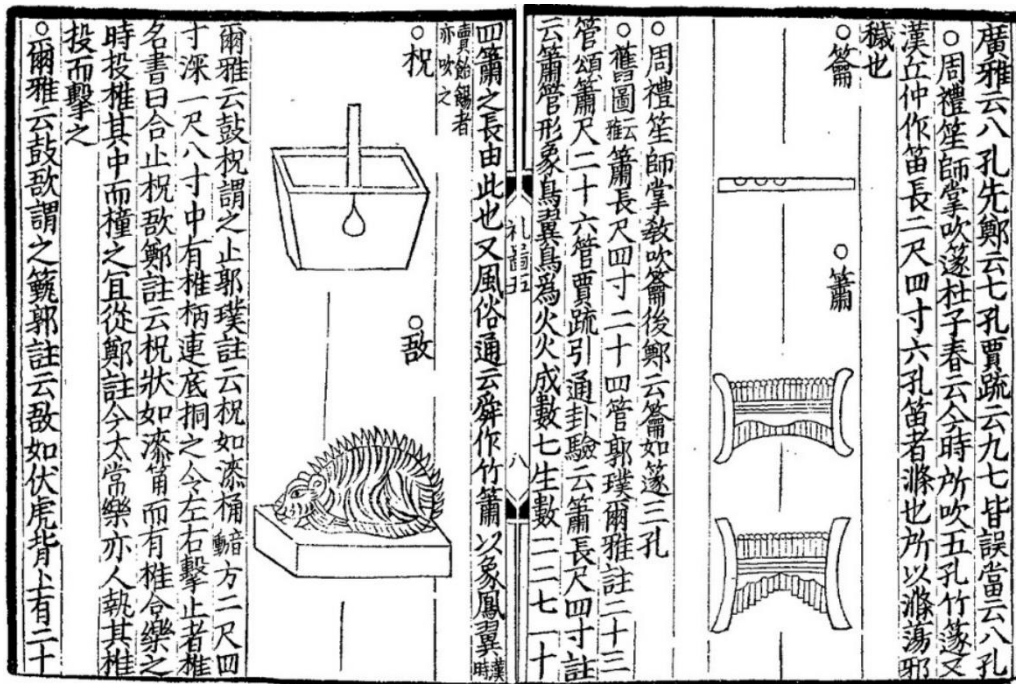 廣雅云八孔先鄭云七孔賈疏云九七皆誤當云八孔
○周禮笙師掌吹篴杜子春云今時所吹五孔竹篴又
漢丘仲作笛長二尺四寸六孔笛者滌也所以滌蕩邪
穢也
○籥
○簫
○周禮笙師掌敎吹籥後鄭云籥如篴三孔
○舊圖云雅簫長尺四寸二十四管郭璞爾雅註二十三
管頌簫尺二十六管賈疏引通卦驗云簫長尺四寸註
云簫管形象鳥翼鳥爲火火成數七生數二二七一十
礼啚五
八
四簫之長由此也又風俗通云舜作竹簫以象鳳翼漢時
賣飴餳者亦吹之
○柷
○敔
爾雅云鼓柷謂之止郭璞註云柷如漆桶音動方二尺四
寸深一尺八寸中有椎柄連底挏之令左右擊止者椎
名書曰合止柷敔鄭註云柷狀如漆筩而有椎合樂之
時投椎其中而橦之冝從鄭註今太常樂亦人執其椎
投而擊之
○爾雅云鼓敔謂之籈郭註云敔如伏虎背上有二十